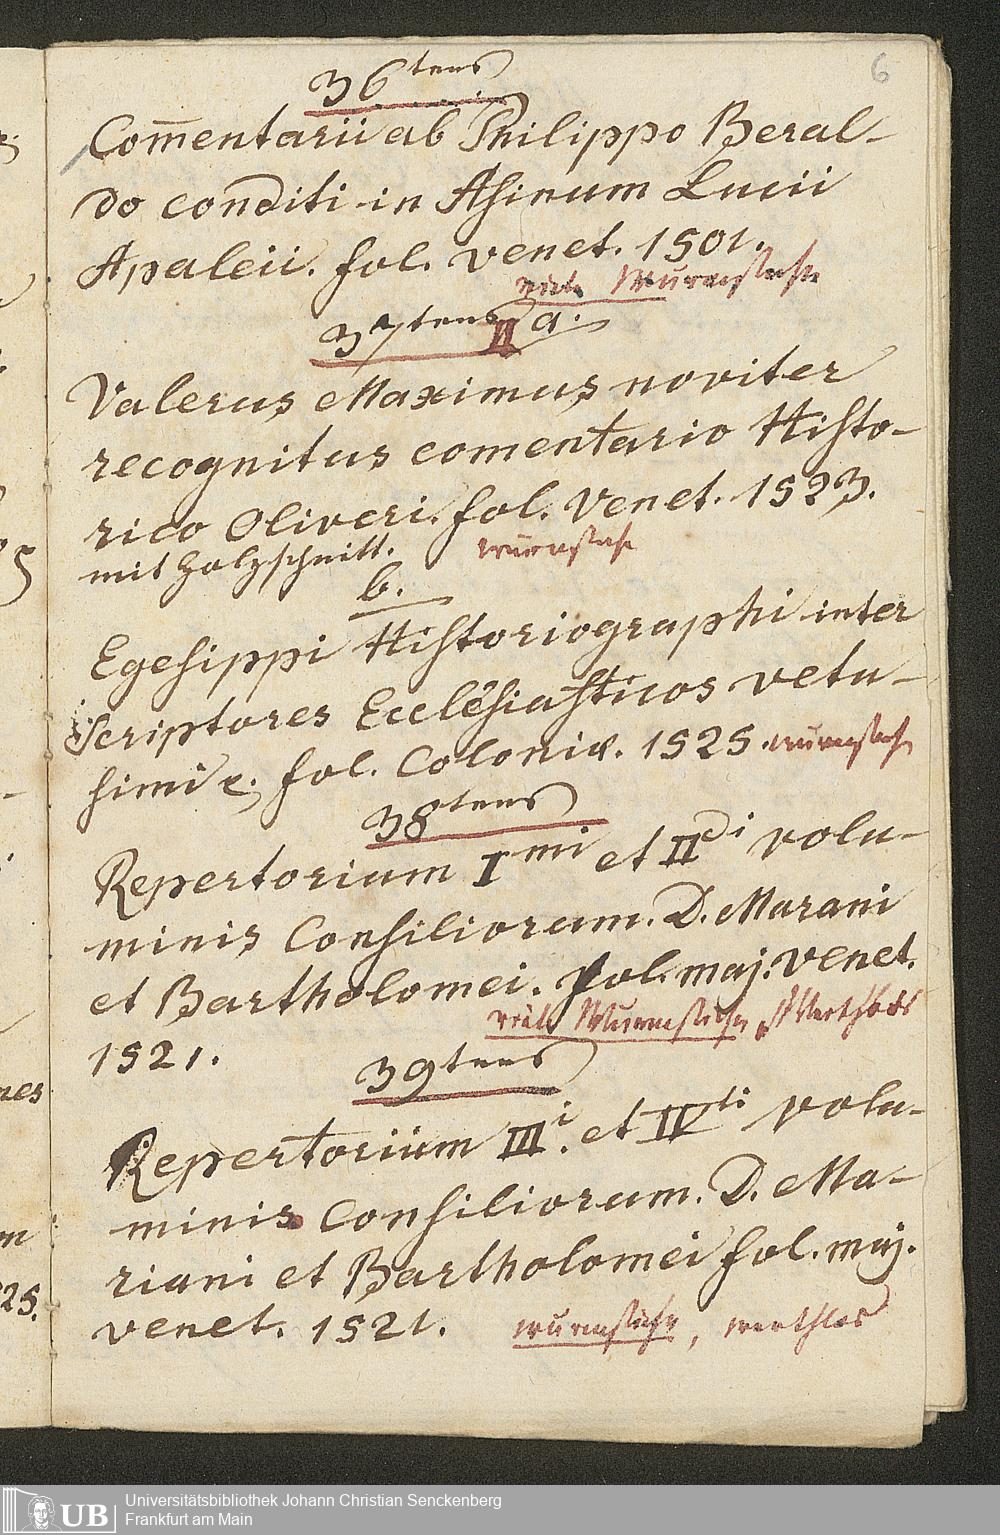 6
36tens
Com̅entarii ab Philippo Beral-
do conditi in Asinum Lucii
Apaleii. fol. venet. 1501.
viele Wurmstiche
37tens II a.
Valerus Maximus noviter
recognitus comentario Histo-
rico Oliveri. fol. Venet. 1523.
mit Holzschnitt. wurmstich
b.
Egesippi Historiographi inter
Scriptores Ecclesiasticos vetu-
simi c. fol. Coloniæ. 1525. wurmstich
38tens
Repertorium Imi et IIdi volu-
minis Consiliorum. D. Marani
et Bartholomei. fol. maj. venet.
viele Wurmstiche, werthlos
1521.
39tens
Repertorium IIIi. et IVti volu-
minis Consiliorum. D. Ma-
riani et Bartholomei fol. maj.
venet. 1521. wurmstichig, werthlos
nes
25.
UB
Universitätsbibliothek Johann Christian Senckenberg
Frankfurt am Main